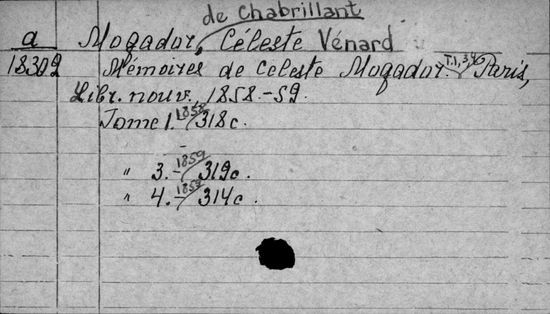 de Chabrillant
a Mogador, Céleste Vénard
18302 Mémoires de Celeste Mogador. T.1,3,4 Paris,
Libr. nouv. 1858.-59.
Tome 1. 1858 318 c.
" 3.- 1859 319 c.
" 4.- 1859 314 c.